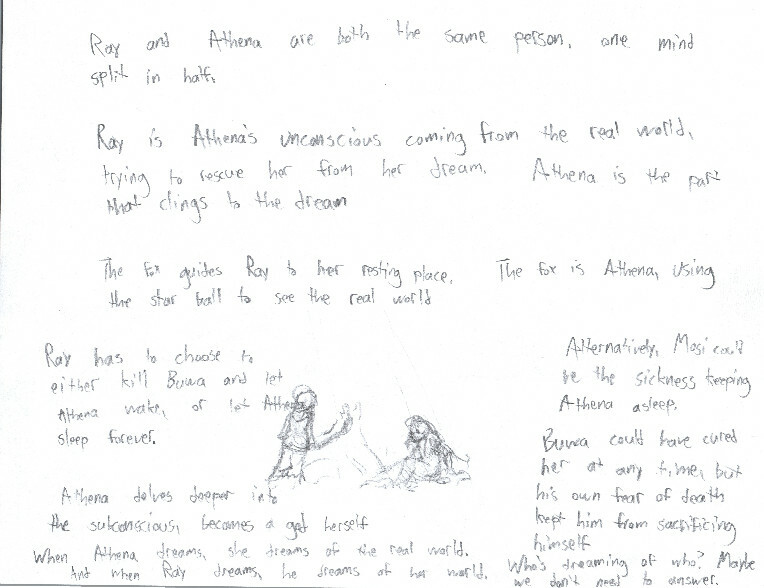 Ray and Athena are both the same person, one mind
split in half.
Ray is Athena's unconscious coming from the real world,
trying to rescue her from her dream. Athena is the part
that clings to the dream
The fox guides Ray to her resting place. The fox is Athena, using
the star ball to see the real world
Ray has to choose to
either kill Buwa and let
Athena wake, or let Athena
sleep forever.
Alternatively, Mosi could
be the sickness keeping
Athena asleep.
Buwa could have cured
her at any time, but
his own fear of death
kept him from sacrificing
himself
Athena delves deeper into
the subconscious, becomes a god herself
When Athena dreams, she dreams of the real world.
And when Ray dreams, he dreams of her world.
Who's dreaming of who? Maybe
we don't need to answer.